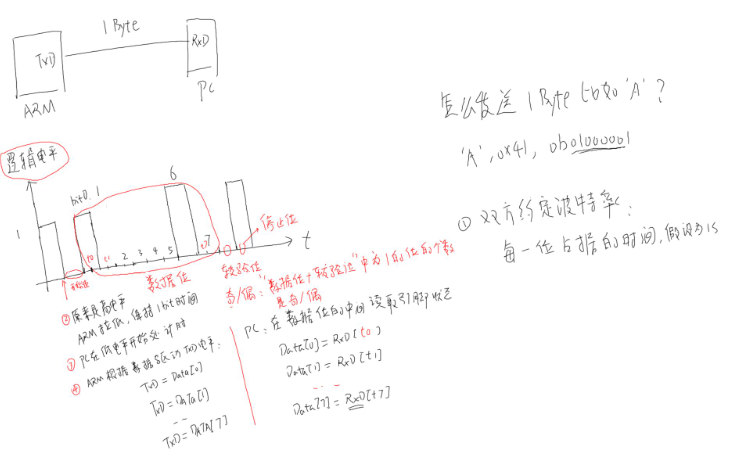 1 Byte
TxD
RxD
ARM
PC
怎么发送 1 Byte 比如 'A' ?
'A', 0x41, 0b01000001
① 双方约定波特率:
每一位占据的时间, 假设为1s
逻辑电平
1
bit0. 1
6
2 3 4 5
7
t
停止位
数据位
校验位
奇/偶: "数据位+校验位"中为1的位的个数
是奇/偶
② 原来是高电平
ARM拉低, 保持1bit时间
③ PC在低电平开始处计时
④ ARM根据数据驱动TxD电平:
TxD = Data[0]
TxD = DATA[1]
...
TxD = DATA[7]
PC: 在数据位的中间读取引脚状态
Data[0] = RxD[t0]
Data[1] = RxD[t1]
...
Data[7] = RxD[t7]